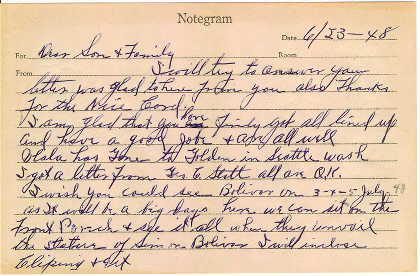 Notegram
Date 6/23-48
For Dear Son & Family Room
From I will try to answer your
letter was glad to here from you also Thanks
for the Nice Card
I am glad that you have Finly got all lined up
and have a good Job & are all well
has Gone to in Seattle wash
I got a letter from all are O.K.
I wish you could see Bolivar on 3-4-5 July, 48
as it will be a big days here we can sit on the
front Porach & see it all when they unvail
the Stature of Simon Bolivar I will inclose
Cliping &